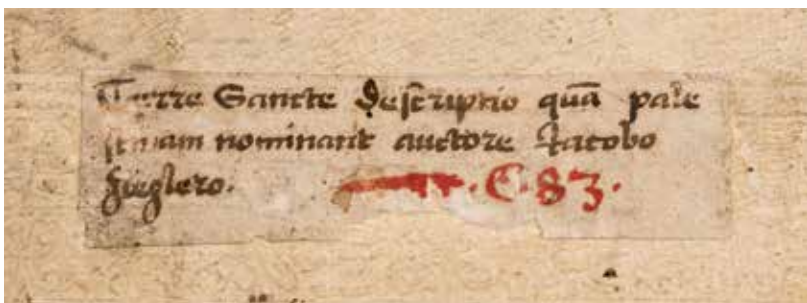 Terre Sancte Descriptio quā pale
stinam nominant auctore Jacobo
zieglero. .C.83.